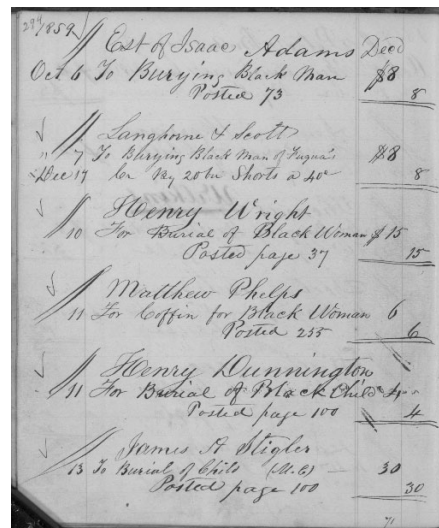 294/1859
Est of Isaac Adams Decd
Oct 6 To Burying Black Man $8
Posted 73 8
Langhorne & Scott
" 7 To Burying Black Man of Fuqua's $8
Dec 17 Cr By 20 bu Shorts a 40c 8
Henry Wright
10 For Burial of Black Woman $15
Posted page 37 15
Matthew Phelps
11 For Coffin for Black Woman 6
Posted 255 6
Henry Dunnington
11 For Burial of Black Child 4
Posted page 100 4
James A Stigler
13 To Burial of Child (M.E) 30
Posted page 100 30
71